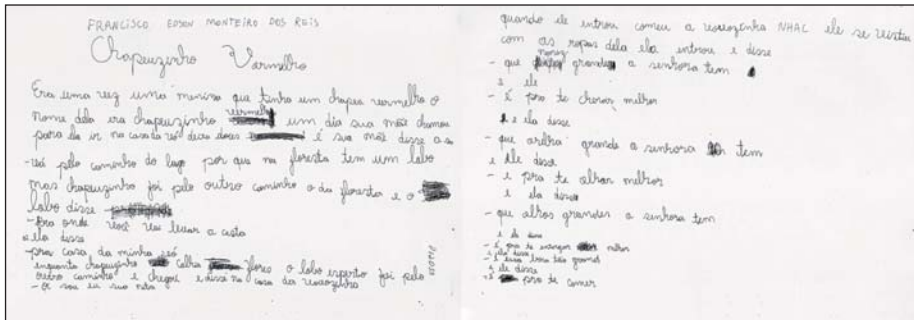 FRANCISCO EDSON MONTEIRO DOS REIS
Chapeuzinho Varmelho
Era uma vez uma menina que tinha um chapeu vermelho o
nome dela era chapeuzinho vermelho um dia sua mãe chamou
para ela ir na casa da vó é sua mãe disse
- vá pelo caminho do lago por que na floresta tem um lobo
mas chapeuzinho foi pelo outro caminho o da floresta e o
lobo disse
- Pra onde você vai levar a cesta
e ela disse
- pra casa da minha vó
enquanto chapeuzinho colhia flores o lobo esperto foi pelo
outro caminho e chegou e disse na casa da vovozinha
- Oi sou eu sua neta
quando ele entrou comeu a vovozinha NHAC ele se vistiu
com as ropas dela ela entrou e disse
- que nariz grande a senhora tem
e ele
- é pra te cherar melhor
e ela disse
- que orelha grande a senhora tem
e ele disse
- e pra te olhar melhor
e ela disse
- que olhos grandes a senhora tem
e ele disse
- é pra te melhor
e ela disse
- e essa boca tão grande
e ele disse
- é pra te comer